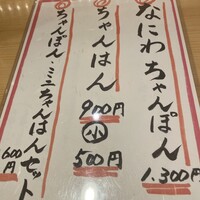 なにわちゃんぽん
1.300円
ちゃんはん
900円
小 500円
ちゃんぽん・ミニちゃんはんセット
600円